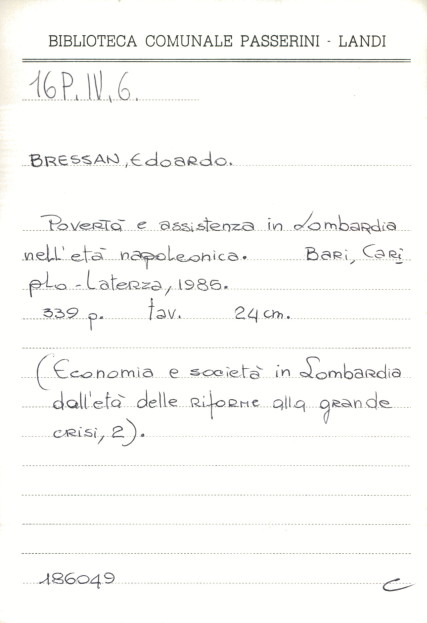 BIBLIOTECA COMUNALE PASSERINI - LANDI
16P.IV.6.
BRESSAN, Edoardo.
Povertà e assistenza in Lombardia
nell'età napoleonica. Bari, Cari
plo - Laterza, 1985.
339 p. tav. 24 cm.
(Economia e società in Lombardia
dall'età delle riforme alla grande
crisi, 2).
186049 C